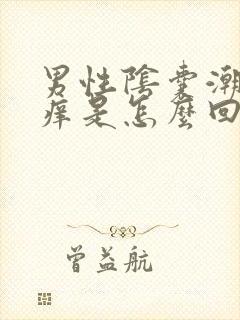 男性陰囊潮
痒是怎麼回
曾益航